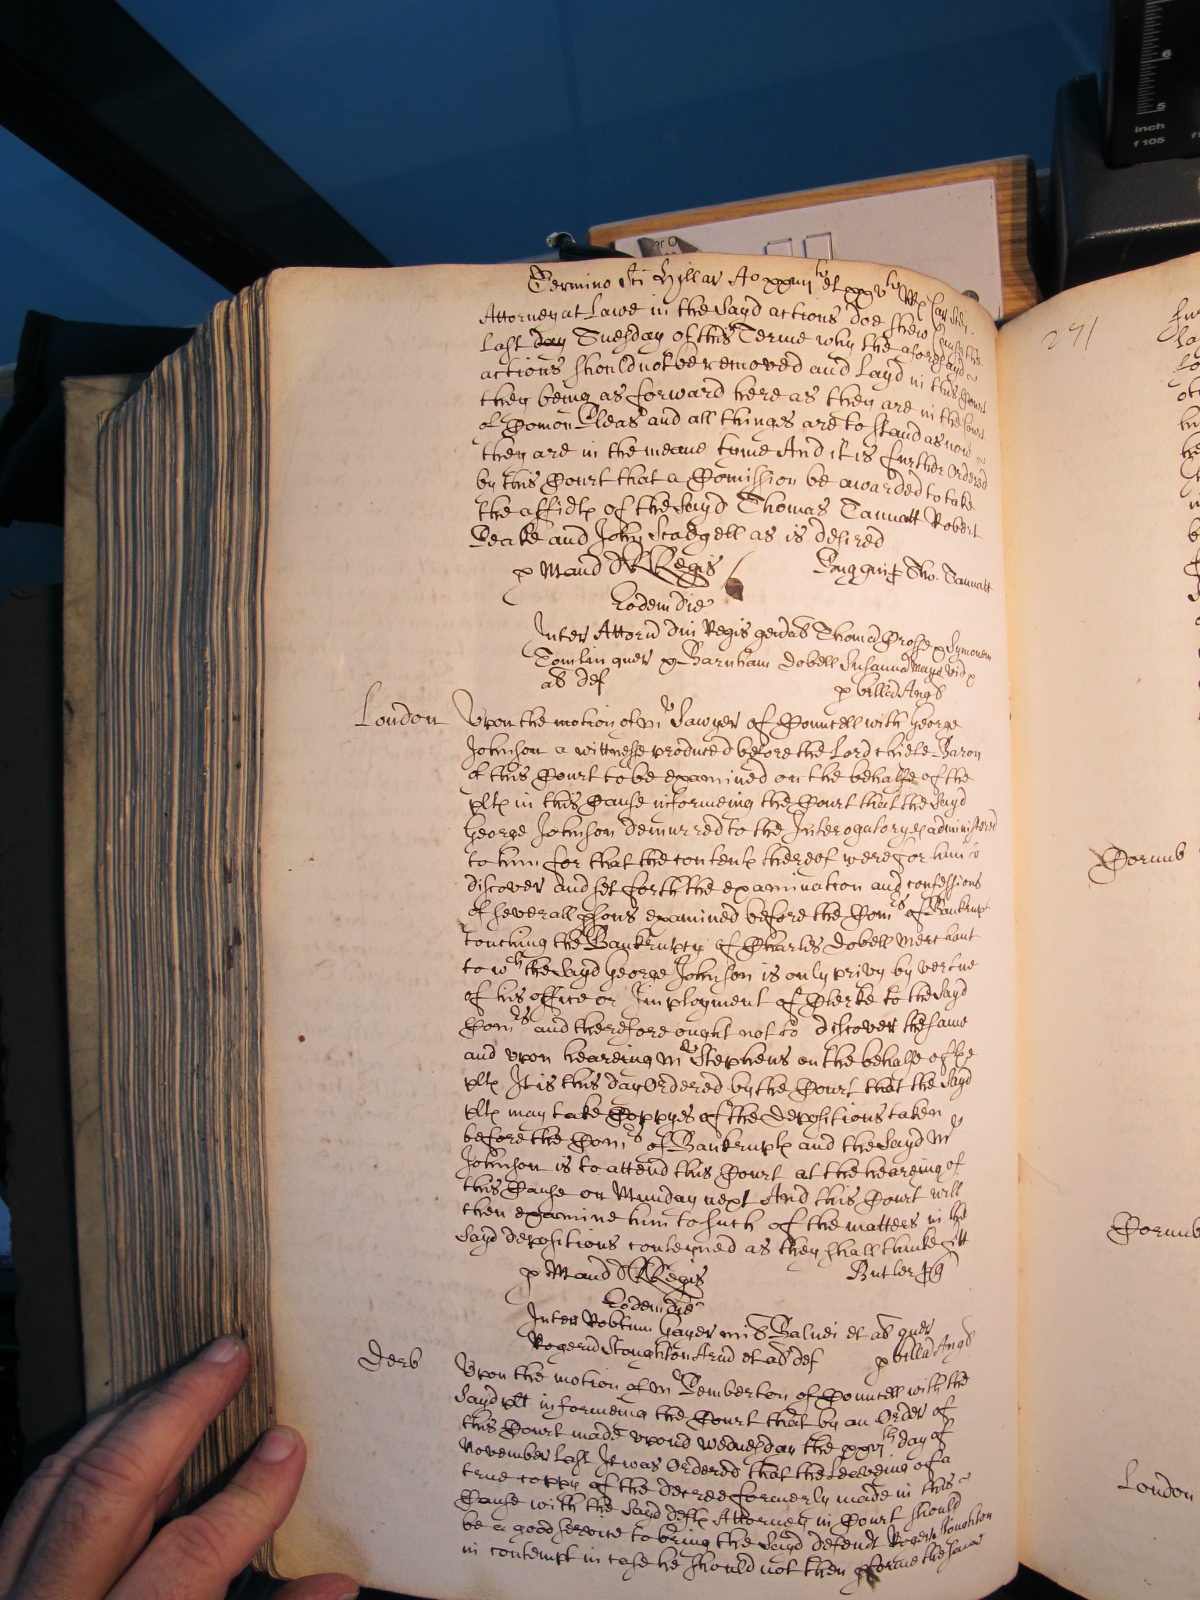 Termino Sci Hillar Ao xxiiii to et xxv to Rs Car Sedi
Attorney at Lawe in the sayd actions doe shew Cause the
last day Tuesday of this Terme why the aforesayd
actions should not be removed and layd in this Court
they being as forward here as they are in the Court
of Comon Pleas and all things are to stand as now
they are in the meane tyme And it is further Ordered
by this Court that a Comission be awarded to take
the affidts of the sayd Thomas Tannatt Robert
Peake and John Scadgell as is desired
p Mand Regis
Tho. Tannatt
Eodem die
Inter Attorn Dni Regis Thomas Crosse Symonem
Tomlin quer Barnham Dobell Susanna Maye vid
als def
p billa Angs
London
Upon the motion of mr Sawyer of Councell with George
Johnson a wittnesse produced before the Lord Chiefe Baron
of this Court to be examined on the behalfe of the
plts in this Cause informeing the Court that the sayd
George Johnson demurred to the Interogatoryes administred
to him for that the contents thereof were for him to
discover and set forth the examination and confessions
of severall psons examined before the Comrs of Bankrupt
touching the Bankruptcy of Charles Dobell Merchant
to wch the sayd George Johnson is only privy by vertue
of his office or Imployment of Clerke to the sayd
Comrs and therefore ought not to discover the same
and upon heareing mr Stephens on the behalfe of the
plts It is this day Ordered by the Court that the sayd
plts may take Coppyes of the depositions taken
before the Comrs of Bankrupts and the sayd Mr
Johnson is to attend this Court at the heareing of
this Cause on Munday next And this Court will
then examine him to such of the matters in the
sayd depositions conteyned as they shall thinke fitt
p Mand Regis
Butler
Eodem die
Inter Robtum Hayer Balnei et als quer
Rogeru Stoughton Arm et als def
p billa Angs
Derb
Upon the motion of mr Pemberton of Councell with the
sayd plt informeing the Court that by an Order of
this Court made upond Wednesday the xxvith day of
November last It was Ordered that the leaveing of a
true coppy of the decree formerly made in this
Cause with the sayd defts Attorney in Court should
be a good service to bring the sayd defendt Roger Stoughton
in contempt in case he should not then pforme the same
271
Cornub
Cornub
London
inch
f 105
6
5